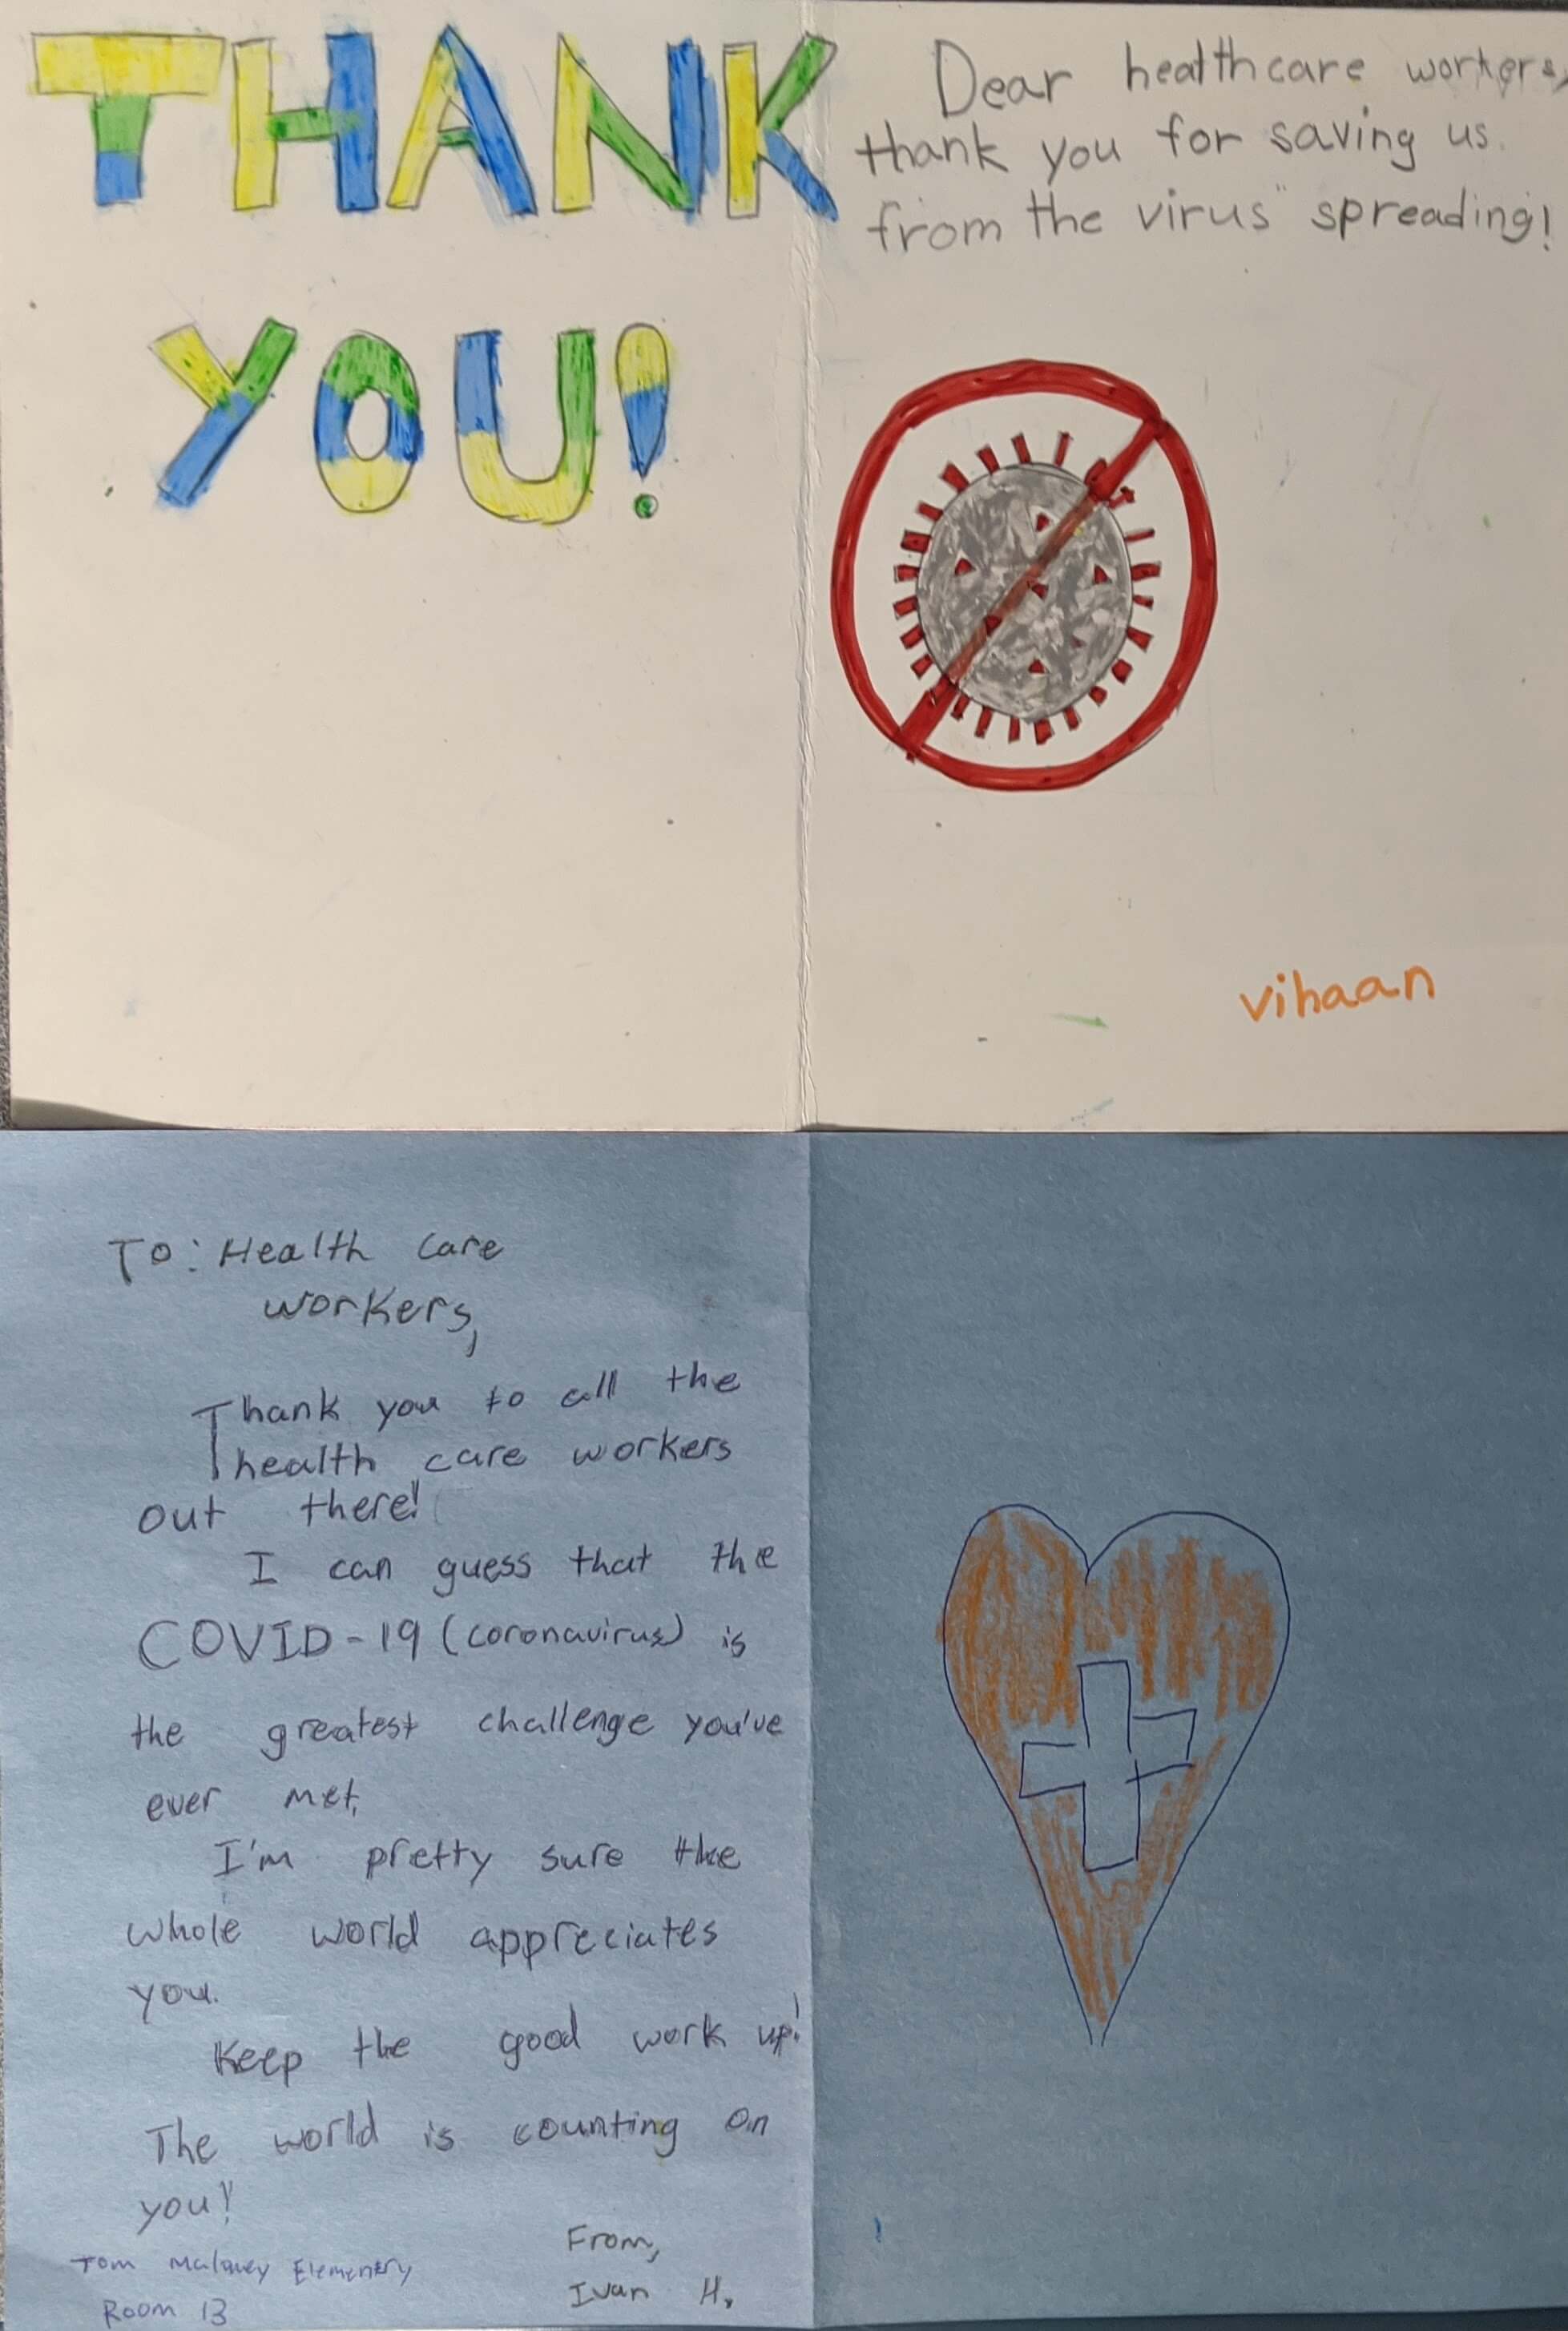 THANK
YOU!
Dear healthcare workers,
thank you for saving us.
from the virus" spreading!
vihaan
To: Health care
workers,
Thank you to all the
health care workers
out there!
I can guess that the
COVID-19 (coronavirus) is
the greatest challenge you've
ever met.
I'm pretty sure the
whole world appreciates
you.
Keep the good work up!
The world is counting on
you!
From,
Ivan H.
Tom Maloney Elementry
Room 13